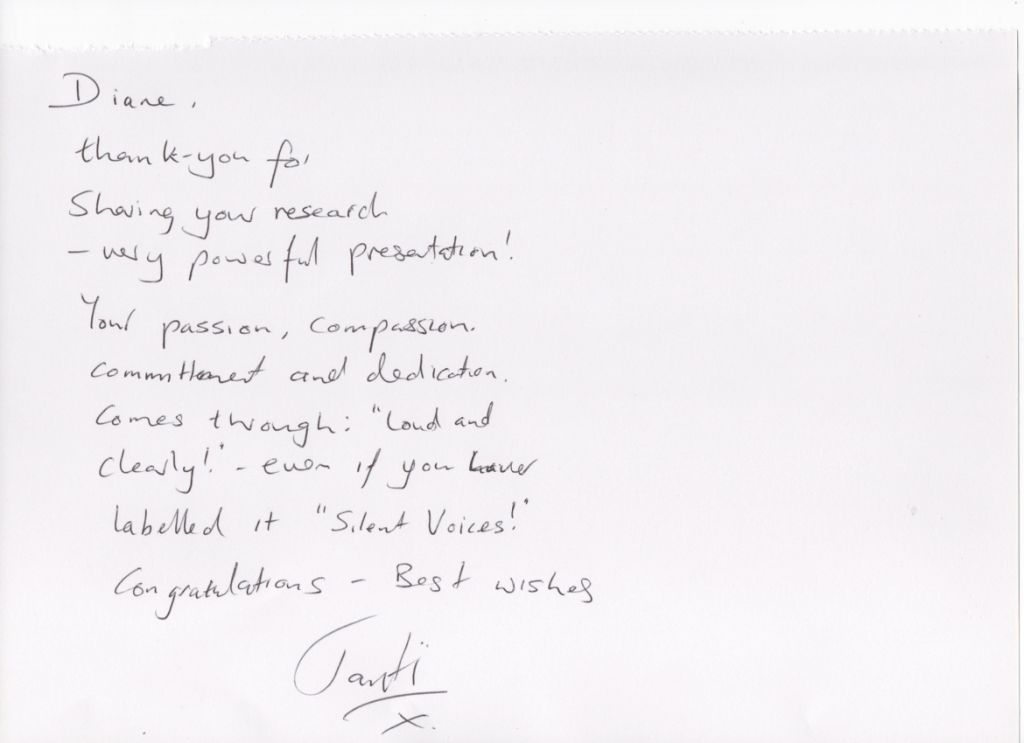 Diane,
thank-you for
Sharing your research
- very powerful presentation!
Your passion, compassion.
commitment and dedication.
Comes through: "Loud and
clearly!" - even if you have
labelled it "Silent Voices!"
Congratulations - Best wishes
x.